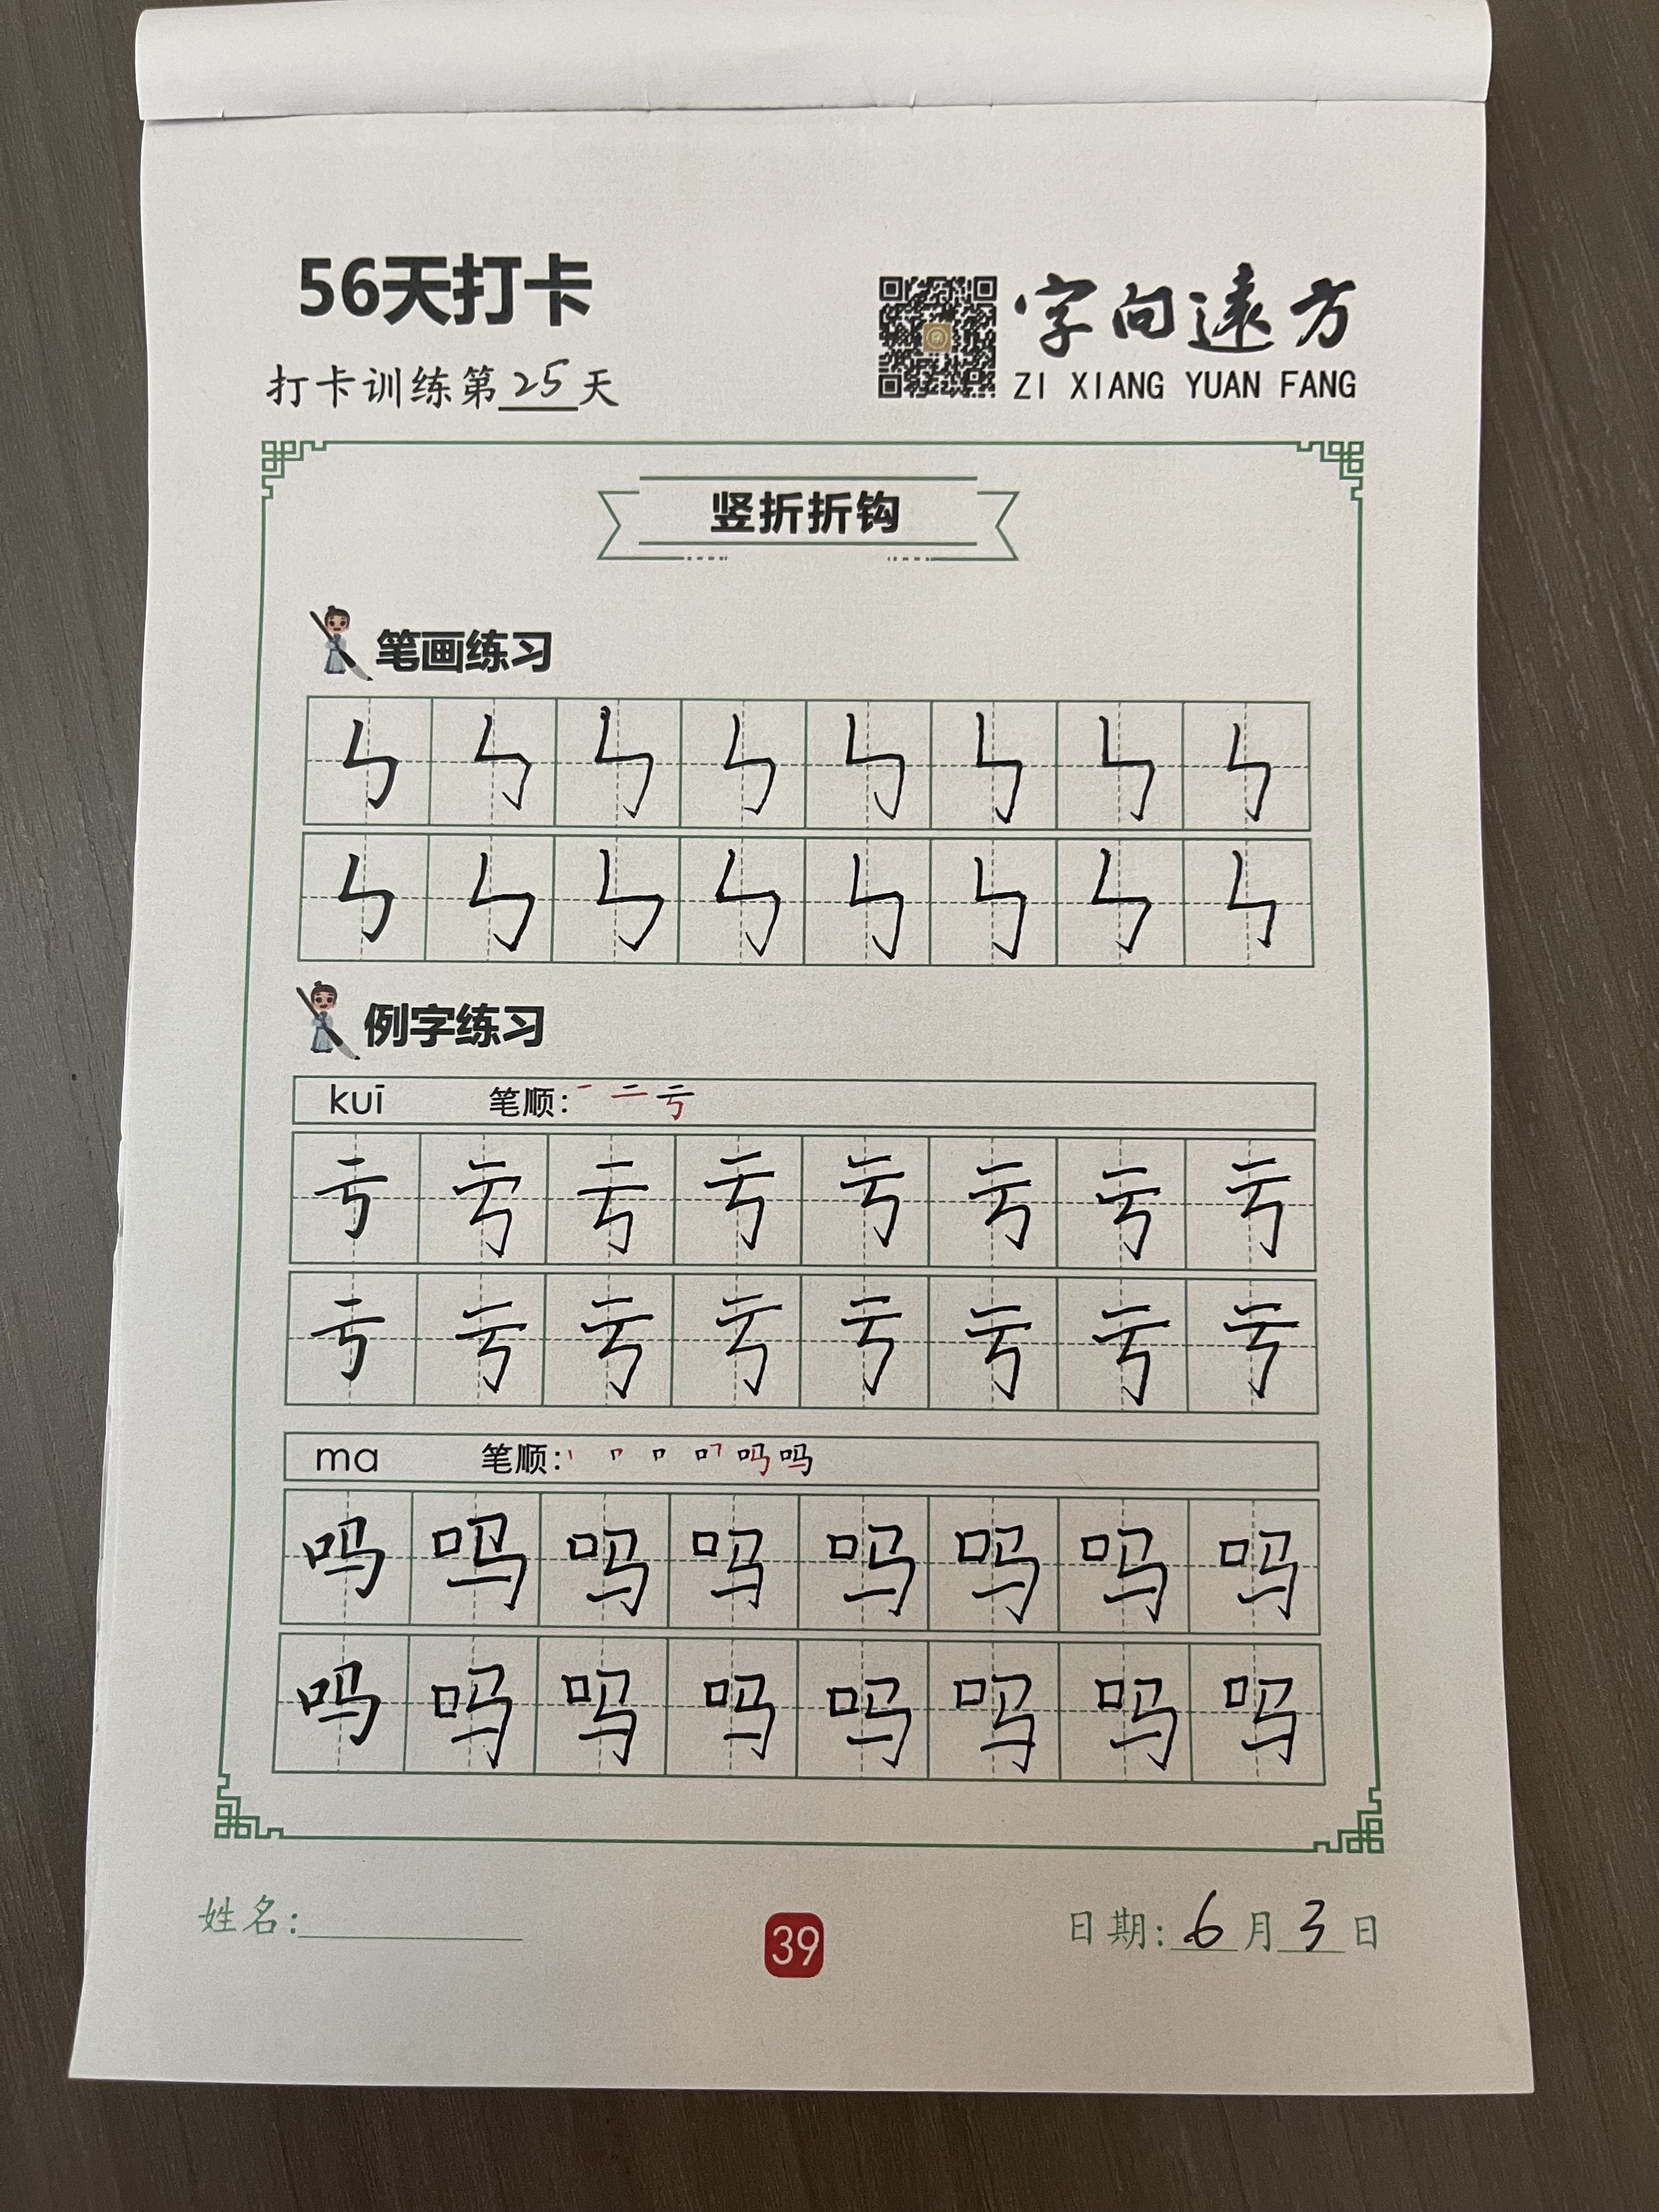 56天打卡
字向遠方
ZI XIANG YUAN FANG
打卡训练第25天
竖折折钩
笔画练习
㇉㇉㇉㇉㇉㇉㇉㇉
㇉㇉㇉㇉㇉㇉㇉㇉
例字练习
kuī 笔顺: 一 二 亏
亏亏亏亏亏亏亏亏
亏亏亏亏亏亏亏亏
ma 笔顺:
吗吗吗吗吗吗吗吗
吗吗吗吗吗吗吗吗
姓名:
39
日期: 6月3日